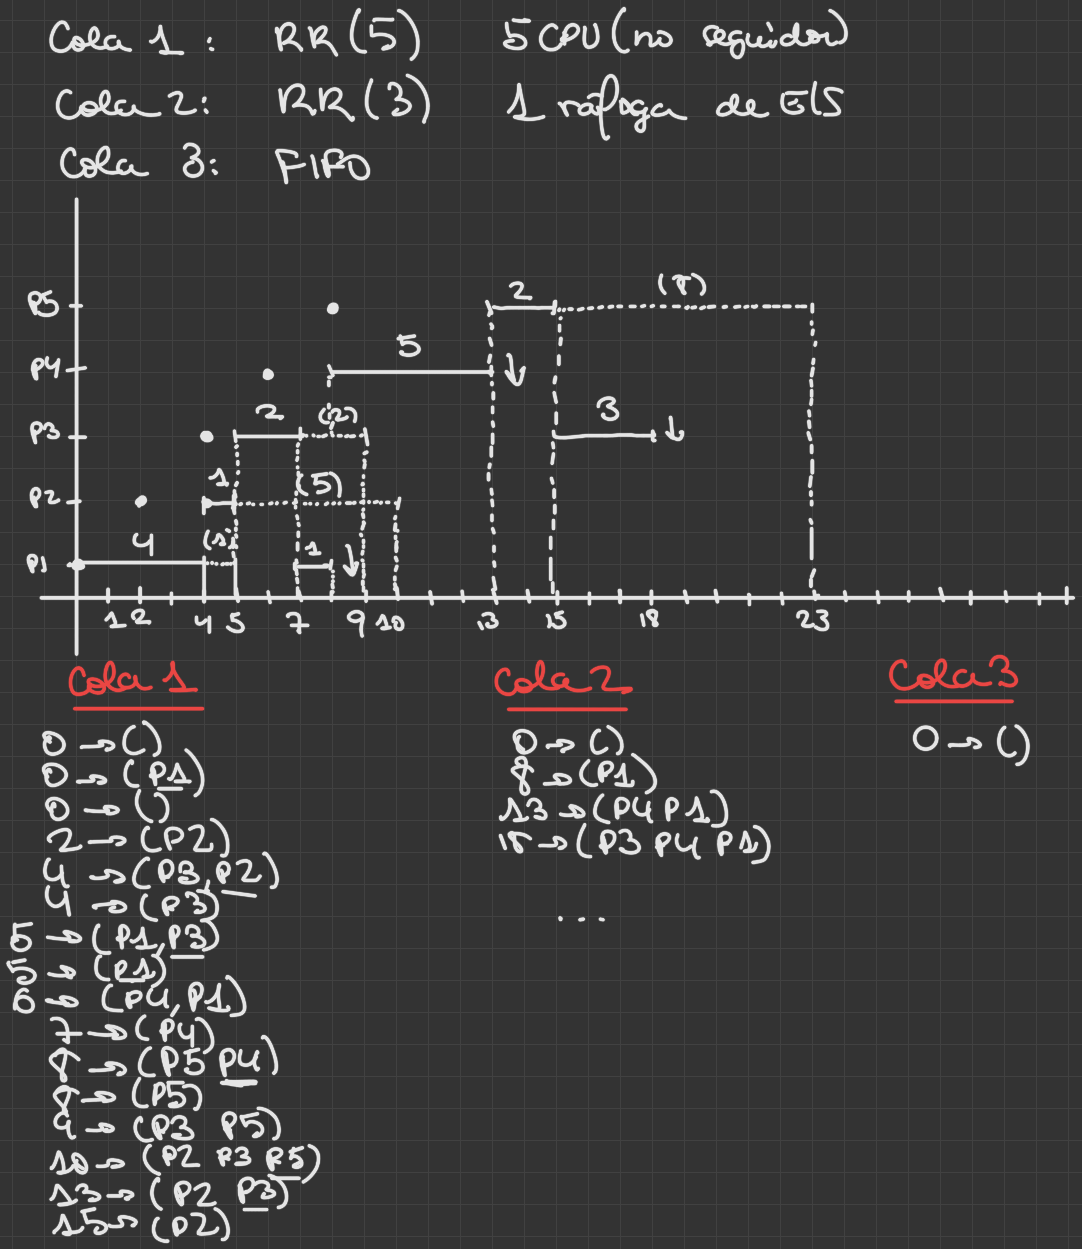 Cola 1: RR(5) 5 CPU (no seguidor)
Cola 2: RR(3) 1 ráfaga de E/S
Cola 3: FIFO
P5 2 (8)
P4 5 ↓
P3 2 (2) 3 ↓
P2 1 (5)
P1 4 (1) 1 ↓
1 2 4 5 7 9 10 13 15 18 23
Cola 1
0 → ()
0 → (P1)
0 → ()
2 → (P2)
4 → (P3, P2)
4 → (P3)
5 → (P1, P3)
5 → (P1)
6 → (P4, P1)
7 → (P4)
8 → (P5 P4)
8 → (P5)
9 → (P3 P5)
10 → (P2 P3 P5)
13 → (P2 P3)
15 → (P2)
Cola 2
0 → ()
8 → (P1)
13 → (P4 P1)
18 → (P3 P4 P1)
...
Cola 3
0 → ()